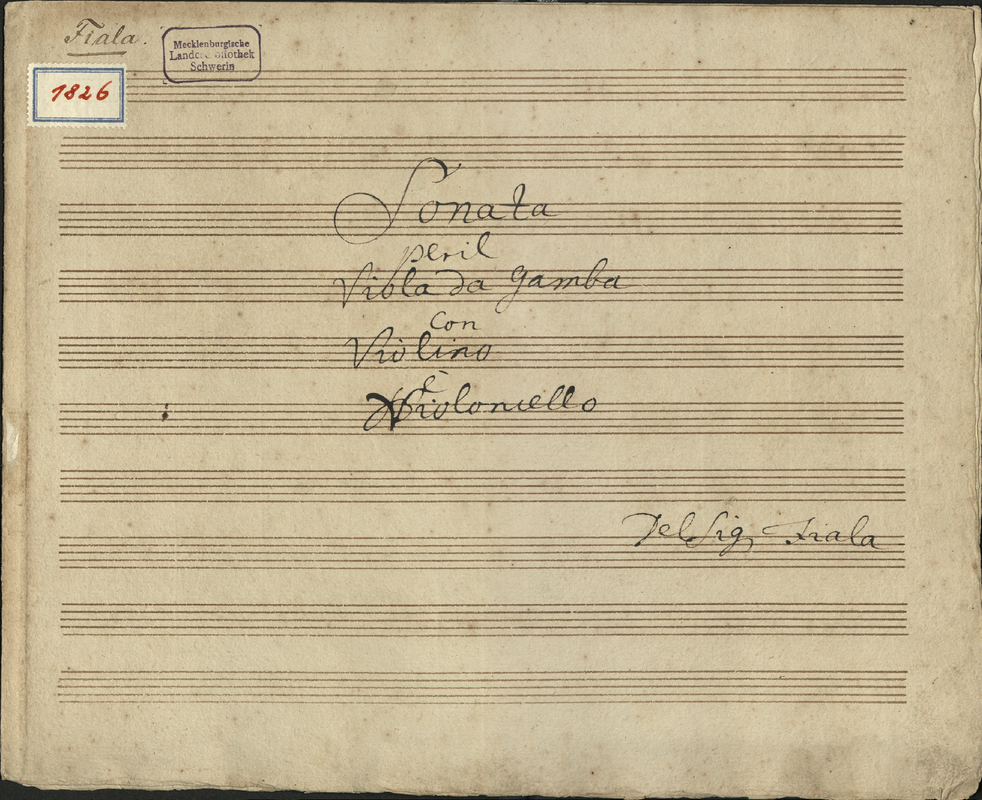 Fiala.
Mecklenburgische
Landesbibliothek
Schwerin
1826
Sonata
per il
Viola da Gamba
Con
Violino
è
Violoncello
Del Sig. Fiala